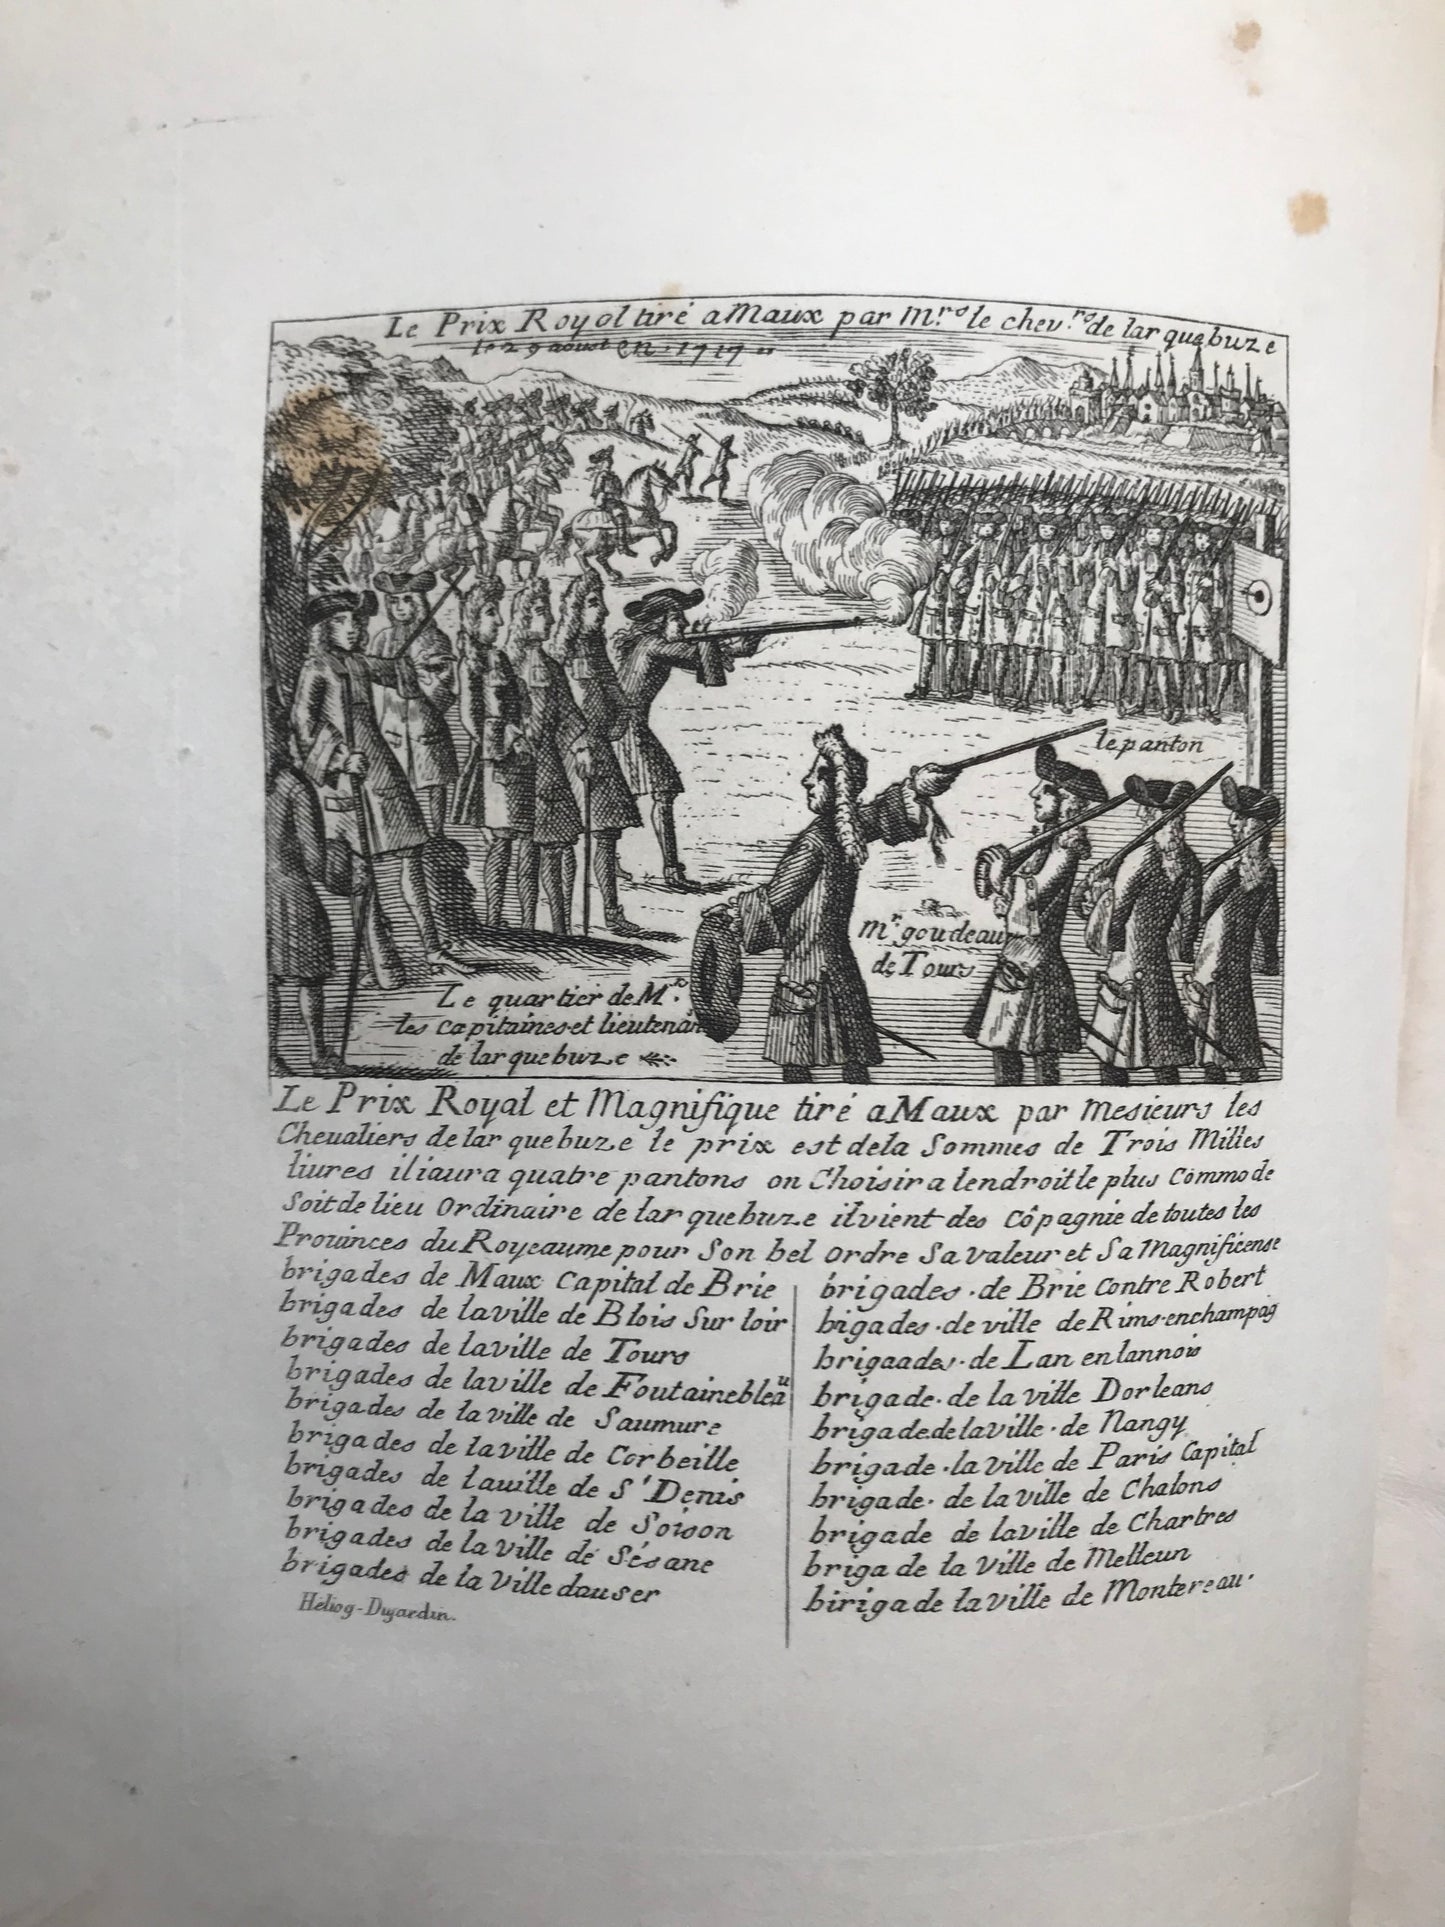 Le Prix Royal tiré a Maux par M.rs le chev.rs de lar quebuze
le 29 aoust en 1717
le panton
mr. goudeau
de Tours
Le quartier de Mrs.
les capitaines et lieutenan
de lar quebuze
Le Prix Royal et Magnifique tiré a Maux par Mesieurs les
Cheualiers de lar quebuze le prix est dela Sommes de Trois Milles
liures iliaura quatre pantons on Choisira lendroit le plus Commode
Soit de lieu Ordinaire de lar quebuze ilvient des Côpagnie de toutes les
Prouinces du Royeaume pour Son bel Ordre Sa valeur et Sa Magnificense
brigades de Maux Capital de Brie
brigades de la ville de Blois Sur loir
brigades de laville de Tours
brigades de laville de Foutainebleau
brigades de la ville de Saumure
brigades de la ville de Corbeille
brigades de lauille de St Denis
brigades de la ville de Soison
brigades de la ville de Sésane
brigades de la Ville dauser
brigades de Brie Contre Robert
bigades de ville de Rims enchampag
brigaades de Lan enlannois
brigade de la ville Dorleans
brigade de laville de Nangy
brigade la ville de Paris Capital
brigade de la ville de Chalons
brigade de laville de Chartres
briga de la Ville de Melleun
biriga de la ville de Montereau
Héliog-Dujardin.